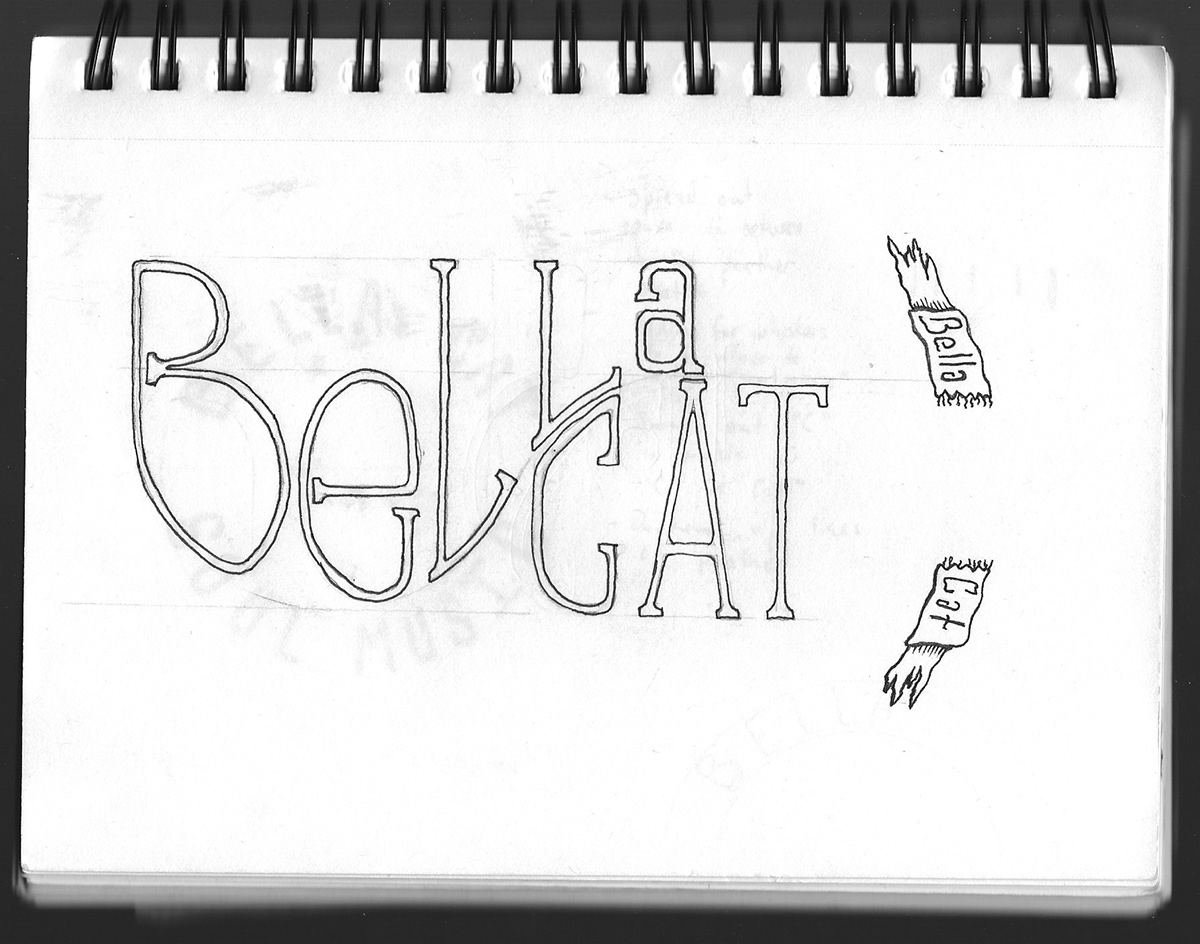 Bella
CAT
Bella
Cat